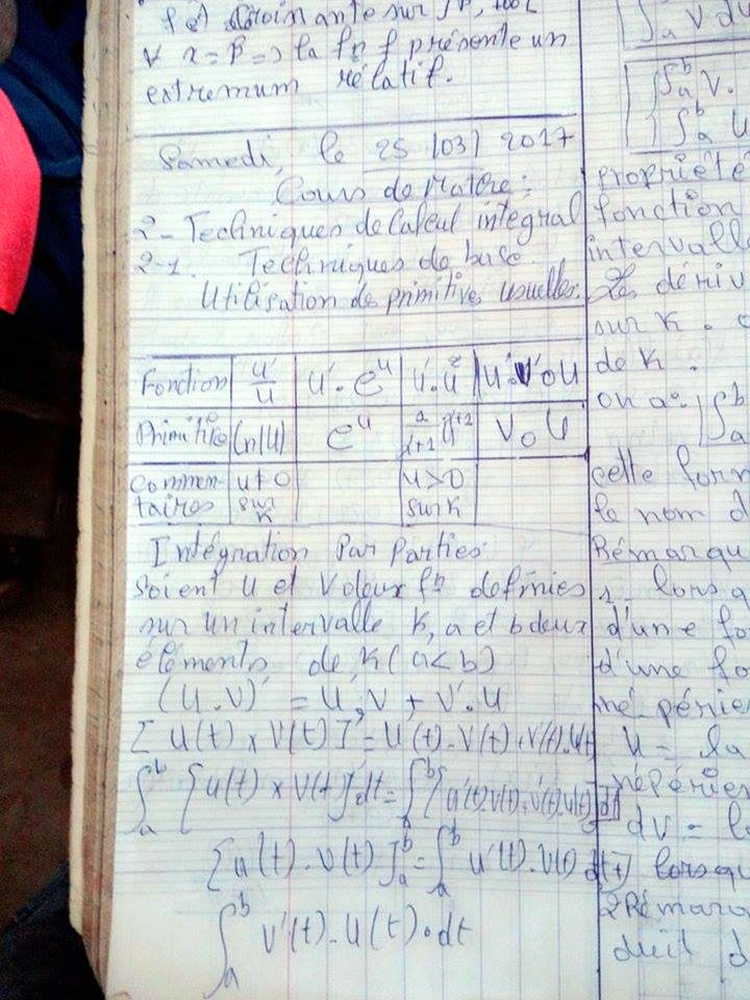 ∀ x = β => la fn f présente un
extremum rélatif.
Samedi, le 25 /03/ 2017
Cours de Maths :
2- Techniques de Calcul intégral
2-1. Techniques de base
Utilisation de primitives usuelles.
Fonction | u'/u | u'. e^u | | u'.v'o u
Primitive | ln|u| | e^u | | v o u
Commen-taires | u ≠ 0 sur K | | u>0 sur K |
Intégration Par Parties
Soient u et v deux fn definies
sur un intervalle K, a et b deux
éléments de K (a<b)
(u.v)' = u'.v + v'.u
[u(t) x v(t)]' = u'(t).v(t) + v'(t).u(t)
∫_a^b [u(t) x v(t)]' dt = ∫_a^b [u'(t).v(t)+v'(t).u(t)] dt
[u(t).v(t)]_a^b = ∫_a^b u'(t).v(t) dt +
∫_a^b v'(t).u(t).dt
∫_a^b v.
∫_a^b u
propriété
fonction
intervall
Les dériv
sur K.
de K.
on a: ∫_a
cette form
le nom d
Rémarqu
1- lorsq
d'une fo
d'une fo
né-périe
u = la
népérien
dv = l
lorsqu
2 Rémarq
duit d